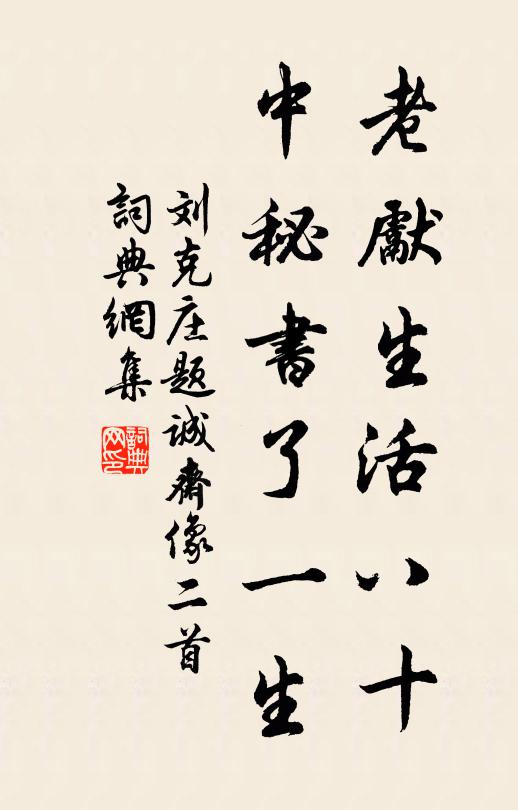 老獻生活八十
中秘書了一生
刘克庄題诚齋像二首
詞典網集
詞典网印